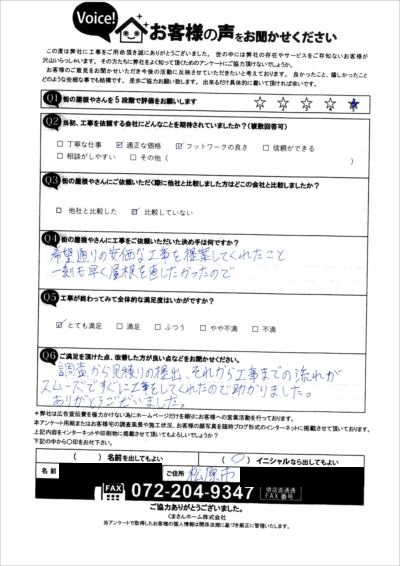 Voice! お客様の声をお聞かせください
この度は弊社に工事をご用命頂き誠にありがとうございました。世の中には弊社の存在やサービスをご存知ないお客様が
沢山いらっしゃいます。その方たちに弊社をよく知って頂くためのアンケートにご協力頂けないでしょうか。
お客様のご意見をお聞かせいただき今後の活動に反映させていただきたいと考えております。良かったこと、嬉しかったこと
どのような些細な事でも結構です。是非ご協力お願い致します。出来るだけ具体的に書いて頂ければ幸いです。
Q1 街の屋根やさんを5段階で評価をお願いします ☆1 ☆2 ☆3 ☆4 ★
Q2 当初、工事を依頼する会社にどんなことを期待されていましたか?(複数回答可)
□ 丁寧な仕事 ☑ 適正な価格 ☑ フットワークの良さ □ 信頼ができる
□ 相談がしやすい □ その他( )
Q3 街の屋根やさんにご依頼いただく際に他社と比較しました方はどこの会社と比較しましたか?
□ 他社と比較した ☑ 比較していない
Q4 街の屋根やさんに工事をご依頼いただいた決め手は何ですか?
希望通りの安価な工事を提案してくれたこと
一刻も早く屋根を直したかったので
Q5 工事が終わってみて全体的な満足度はいかがですか?
☑ とても満足 □ 満足 □ ふつう □ やや不満 □ 不満
Q6 ご満足を頂けた点、改善した方が良い点などをお聞かせください。
調査から見積りの提出、それから工事までの流れが
スムーズですぐに工事をしてくれたので助かりました。
ありがとうございました。
＊弊社は広告宣伝費を極力かけない為にホームページだけを頼りにお客様への営業活動を行っております。
本アンケート用紙またはお客様宅の調査風景や施工状況、お客様の顔写真を随時ブログ形式のインターネットに掲載させて頂いております。
上記内容をインターネットや印刷物に掲載させて頂いてもよろしいでしょうか?
下記の中から○印をお付下さい。
( ) 名前を出してもよい (○) イニシャルなら出してもよい
名前 ご住所 松原市
FAX 072-204-9347 堺店直通 FAX番号
ご協力ありがとうございました。
くまさんホーム株式会社
当アンケートで取得したお客様の個人情報は関係法規に基づき厳正に管理いたします。